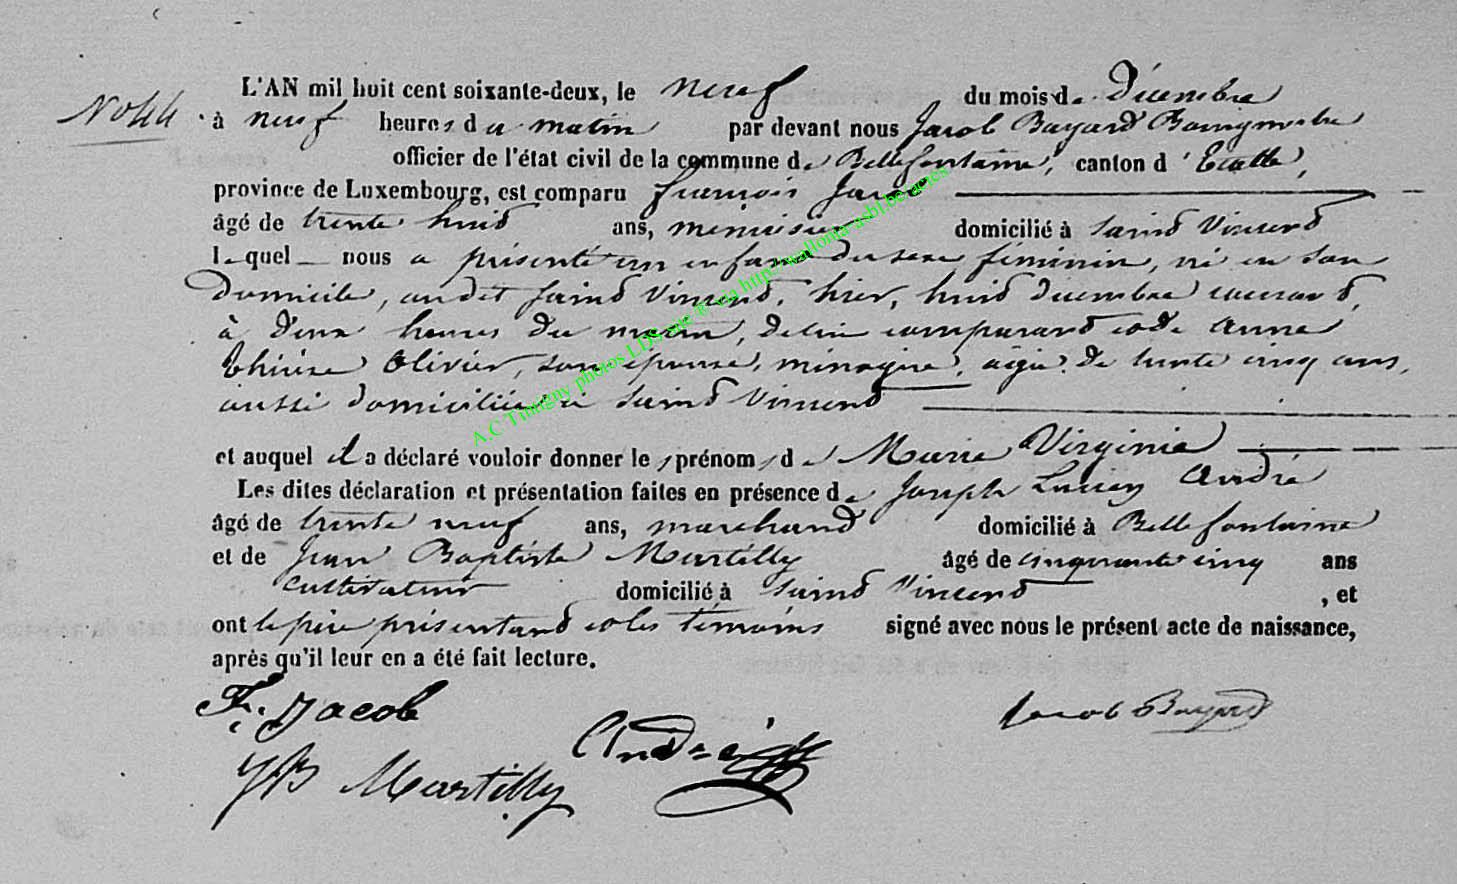 L'AN mil huit cent soixante-deux, le neuf du mois de Décembre
N° 44 à neuf heures du matin par devant nous Jacob Bayard Bourgmestre
officier de l'état civil de la commune de Bellefontaine, canton d'Etalle,
province de Luxembourg, est comparu François Jacob
âgé de trente huit ans, menuisier domicilié à Saint Vincent
lequel nous a présenté un enfant du sexe féminin, né en son
Domicile, audit Saint Vincent, hier, huit décembre courant,
à deux heures du matin, de lui comparant et de Anne
Thérèse Olivier, son épouse, ménagère, agée de trente cinq ans,
aussi domiciliée à Saint Vincent
et auquel il a déclaré vouloir donner les prénoms de Marie Virginie
Les dites déclaration et présentation faites en présence de Joseph Lucien André
âgé de trente neuf ans, marchand domicilié à Bellefontaine
et de Jean Baptiste Martilly âgé de cinquante cinq ans
cultivateur domicilié à Saint Vincent, et
ont le père présentant et les témoins signé avec nous le présent acte de naissance,
après qu'il leur en a été fait lecture.
Fr. Jacob
Jacob Bayard
André
JB Martilly
A.C Tintigny photos LDS via http://wallonia-asbl.be/actes